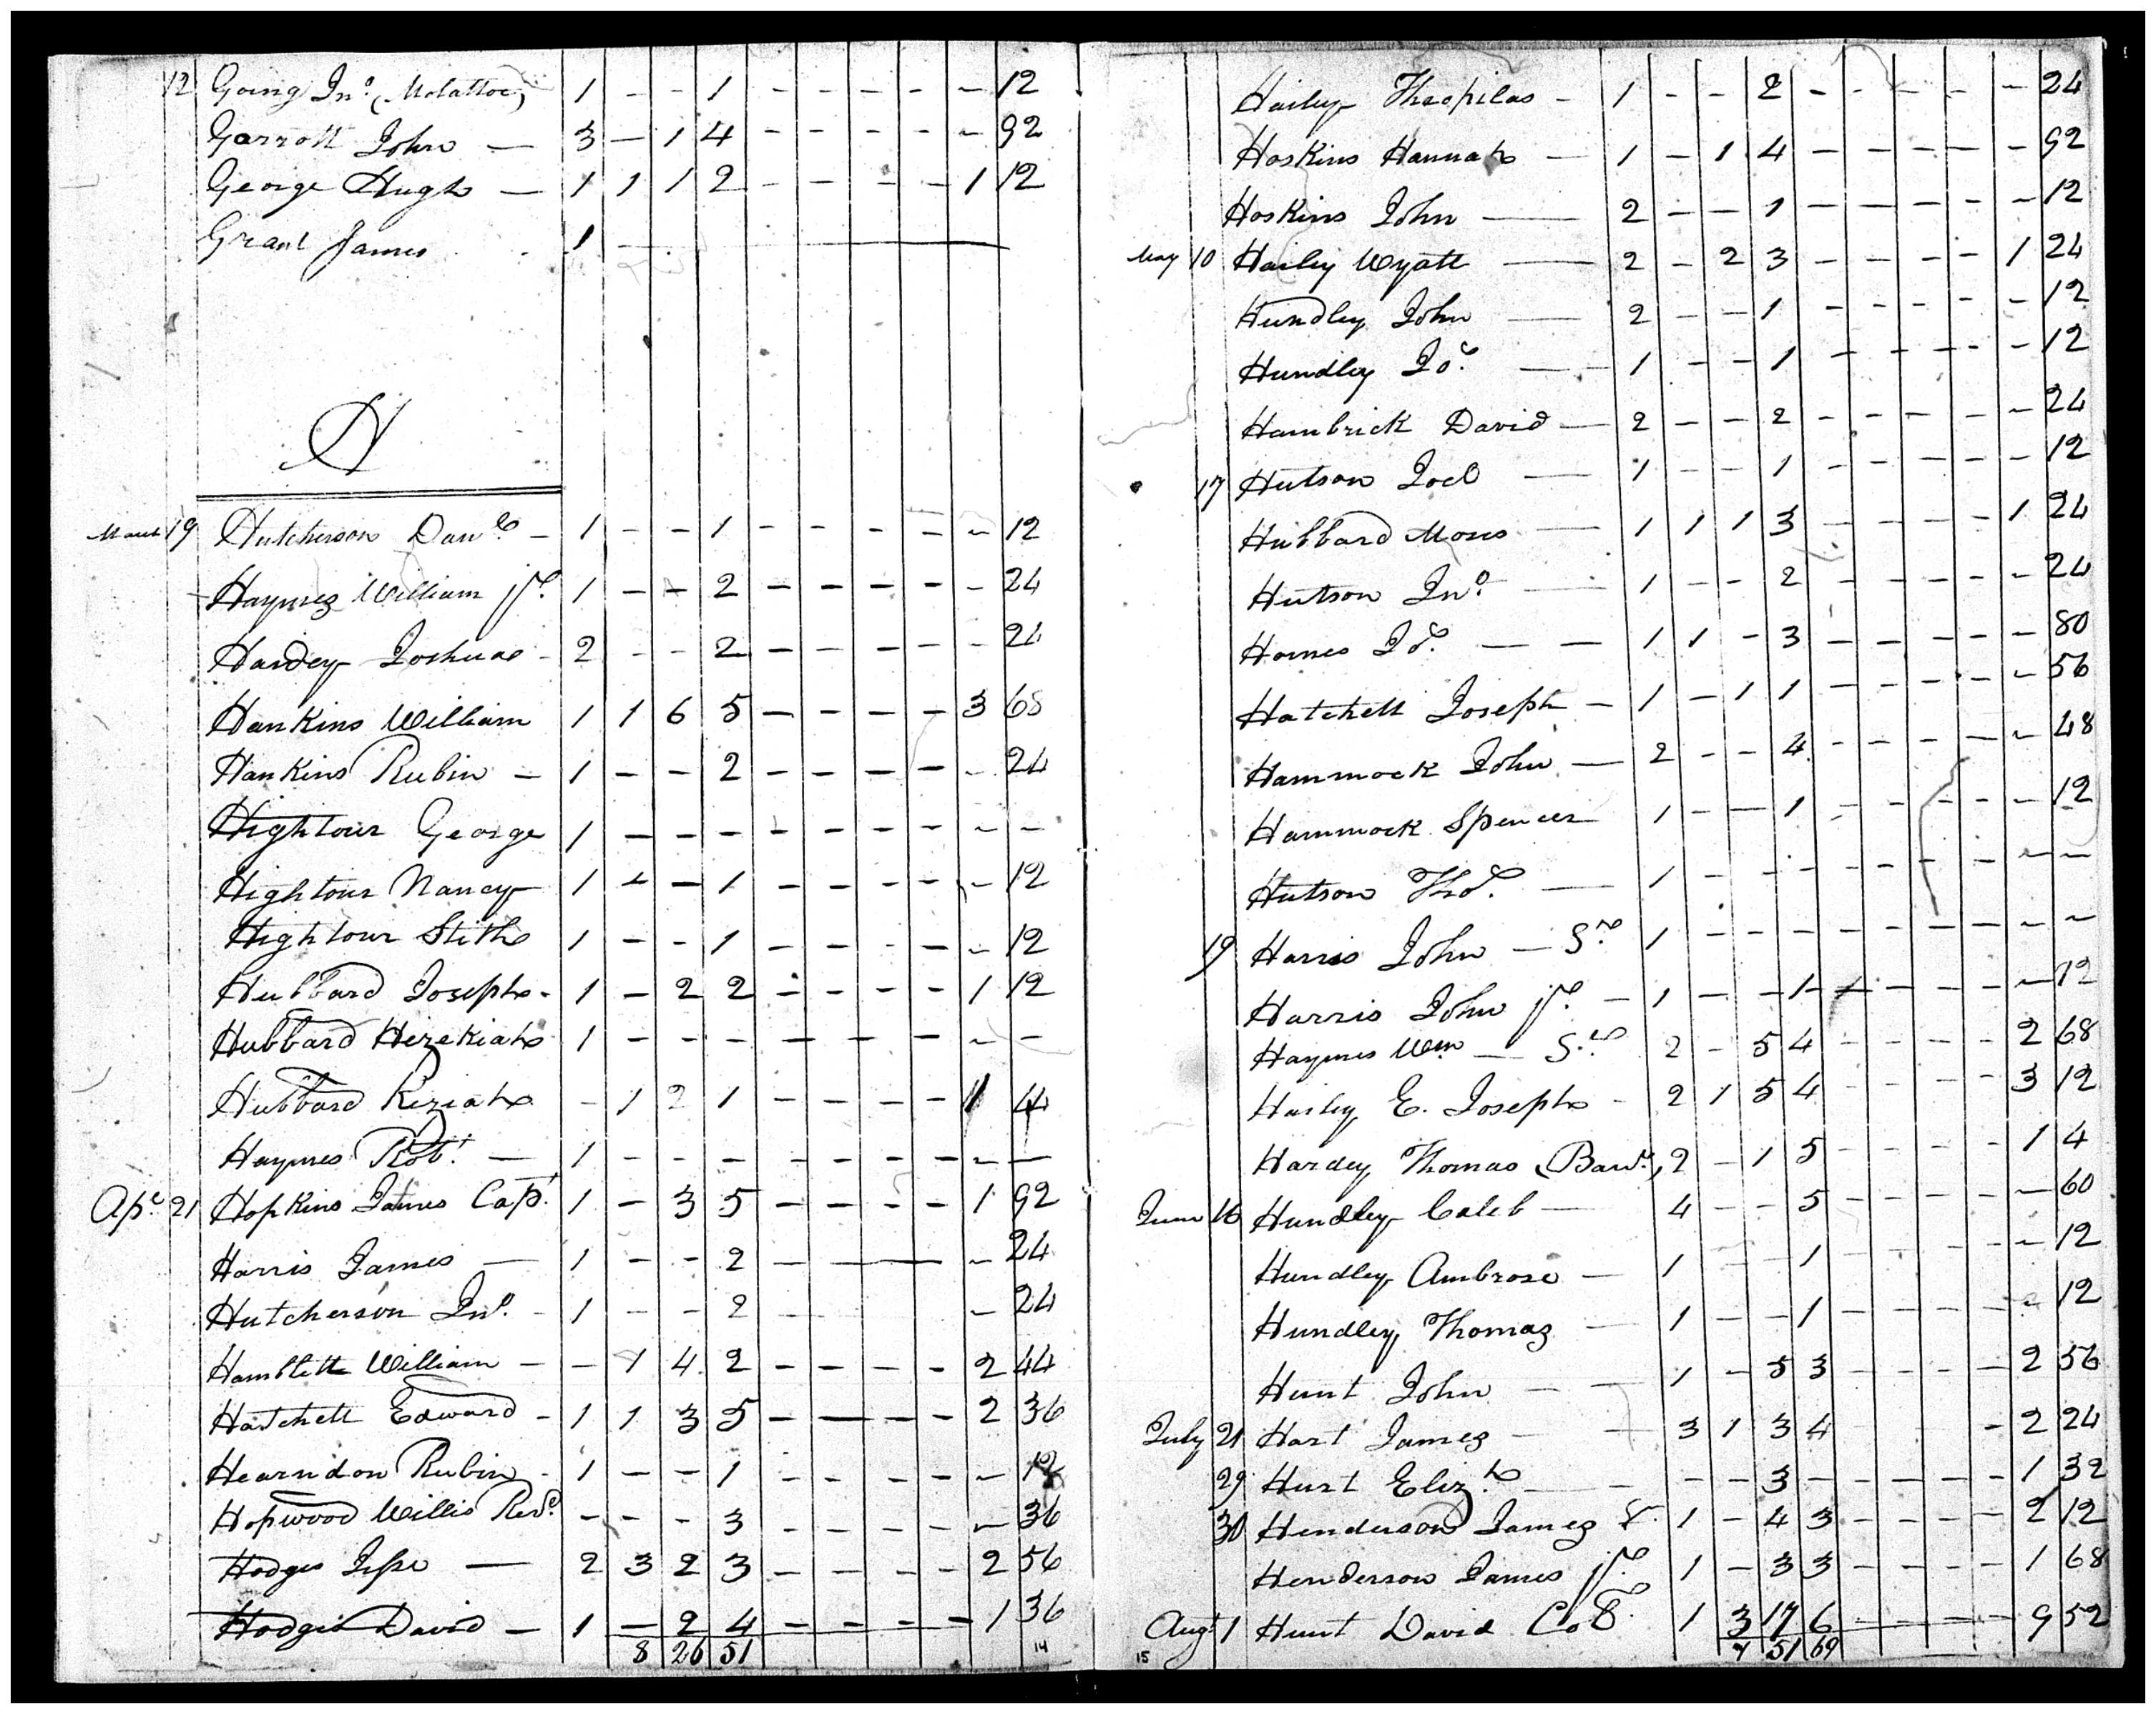 12 Going Jno. (Molattoe) 1 - - 1 - - - - - 12
Garrott John — 3 - 1 4 - - - - - 92
George Hugh — 1 1 1 2 - - - - 1 12
Grant James 1 —
H
March 19 Hutcherson Danl. - 1 - - 1 - - - - - 12
Haymes William jr. 1 - - 2 - - - - - 24
Hardey Joshua - 2 - - 2 - - - - - 24
Hankins William 1 1 6 5 - - - - 3 68
Hankins Rubin - 1 - - 2 - - - - - 24
Hightour George 1 - - - - - - - - -
Hightour Nancy 1 - - 1 - - - - - 12
Hightour Stith 1 - - 1 - - - - - 12
Hubbard Joseph - 1 - 2 2 - - - - 1 12
Hubbard Hezekiah 1 - - - - - - - - -
Hubbard Keziah - 1 2 1 - - - - 1 44
Haymes Robt. — 1 - - - - - - - - —
Apl. 21 Hopkins James Capt. 1 - 3 5 - - - - 1 92
Harris James — 1 - - 2 - - - - - 24
Hutcherson Jno. - 1 - - 2 - - 24
Hamblett William - - 1 4 2 - - - - 2 44
Hatchett Edward - 1 1 3 5 - - - - 2 36
Hearndon Rubin - 1 - - 1 - - - - - 12
Hopwood Willis Revd. - - - 3 - - - - - 36
Hodges Jesse — 2 3 2 3 - - - - 2 56
Hodges David - 1 - 2 4 - - - - 1 36
8 26 51
14
Hailey Theopilas - 1 - - 2 - - - - - 24
Hoskins Hannah — 1 - 1 4 - - - - - 92
Hoskins John — 2 - - 1 - - - - - 12
May 10 Hailey Wyatt — 2 - 2 3 - - - - 1 24
Hundley John — 2 - - 1 - - - - - 12
Hundley Jos. — 1 - - 1 - - - - - 12
Hambrick David — 2 - - 2 - - - - - 24
17 Hutson Joel — 1 - - 1 - - - - - 12
Hubbard Moses — 1 1 1 3 - - - - 1 24
Hutson Jno. — 1 - - 2 - - - - - 24
Homes Jos. — 1 1 - 3 - - - - - 80
Hatchett Joseph - 1 - 1 1 - - - - - 56
Hammock John — 2 - - 4 - - - - - 48
Hammock Spencer 1 - - 1 - - - - - 12
Hutson Thos. — 1 - - - - - - - - -
19 Harris John — Sr. 1 - - - - - - - - -
Harris John jr. - 1 - - 1 - - - - - 12
Haymes Wm — Sr. 2 - 5 4 - - - - 2 68
Hailey E. Joseph - 2 1 5 4 - - - - 3 12
Hardey Thomas 2 - 1 5 - - - - 1 4
June 16 Hundley Caleb — 4 - - 5 - - - - - 60
Hundley Ambrose — 1 - - 1 - - - - - 12
Hundley Thomas — 1 - - 1 - - - - - 12
Hunt John — 1 - 5 3 - - - - 2 56
July 21 Hart James — 3 1 3 4 - 2 24
29 Hurt Elizh. — - - - 3 - - - - 1 32
30 Henderson James Sr. 1 - 4 3 - - - - 2 12
Henderson James jr. 1 - 3 3 - - - - 1 68
Augt 1 Hunt David 1 3 17 6 - - - - 9 52
7 51 69
15